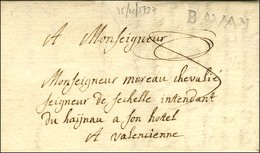 15/10/1737
BAVAY
A Monseigneur
Monseigneur moreau chevalie
seigneur de sechelle intendant
du haijnau a son hostel
A valencienne